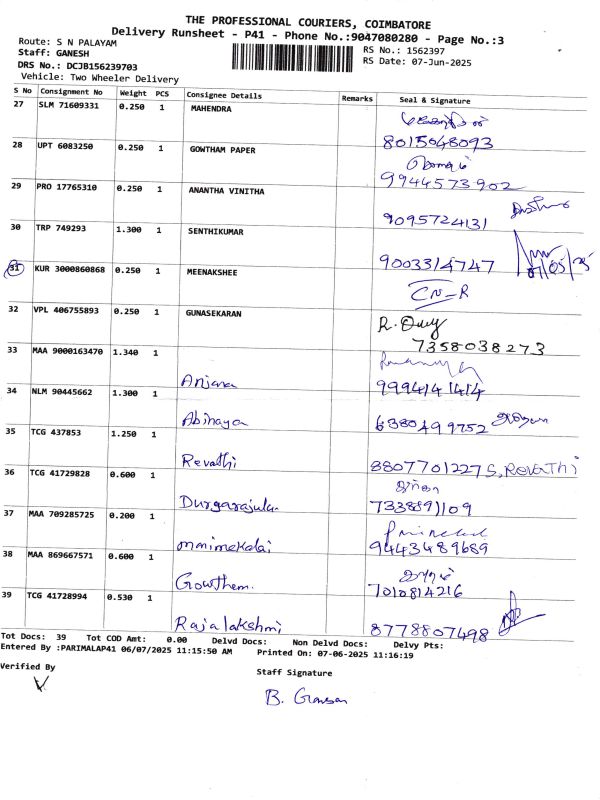 THE PROFESSIONAL COURIERS, COIMBATORE
Delivery Runsheet - P41 - Phone No.:9047080280 - Page No.:3
Route: S N PALAYAM
Staff: GANESH
DRS No.: DCJB156239703
Vehicle: Two Wheeler Delivery
RS No.: 1562397
RS Date: 07-Jun-2025
S No Consignment No Weight PCS Consignee Details Remarks Seal & Signature
27 SLM 71609331 0.250 1 MAHENDRA
8015048093
28 UPT 6083250 0.250 1 GOWTHAM PAPER
9944573902
29 PRO 17765310 0.250 1 ANANTHA VINITHA
9095724131
30 TRP 749293 1.300 1 SENTHIKUMAR
9003314747
31 KUR 3000860868 0.250 1 MEENAKSHEE
CN-R
32 VPL 406755893 0.250 1 GUNASEKARAN
7358038273
33 MAA 9000163470 1.340 1
Anjana 9994141414
34 NLM 90445662 1.300 1
Abinaya 6380499752
35 TCG 437853 1.250 1
Revathi 8807701227 S. Revathi
36 TCG 41729828 0.600 1
Durgarajulu 7338891109
37 MAA 709285725 0.200 1
manimekalai 9443489689
38 MAA 869667571 0.600 1
Gowthem. 7010814216
39 TCG 41728994 0.530 1
Rajalakshmi 8778807498
Tot Docs: 39 Tot COD Amt: 0.00 Delvd Docs: Non Delvd Docs: Delvy Pts:
Entered By :PARIMALAP41 06/07/2025 11:15:50 AM Printed On: 07-06-2025 11:16:19
Verified By
Staff Signature